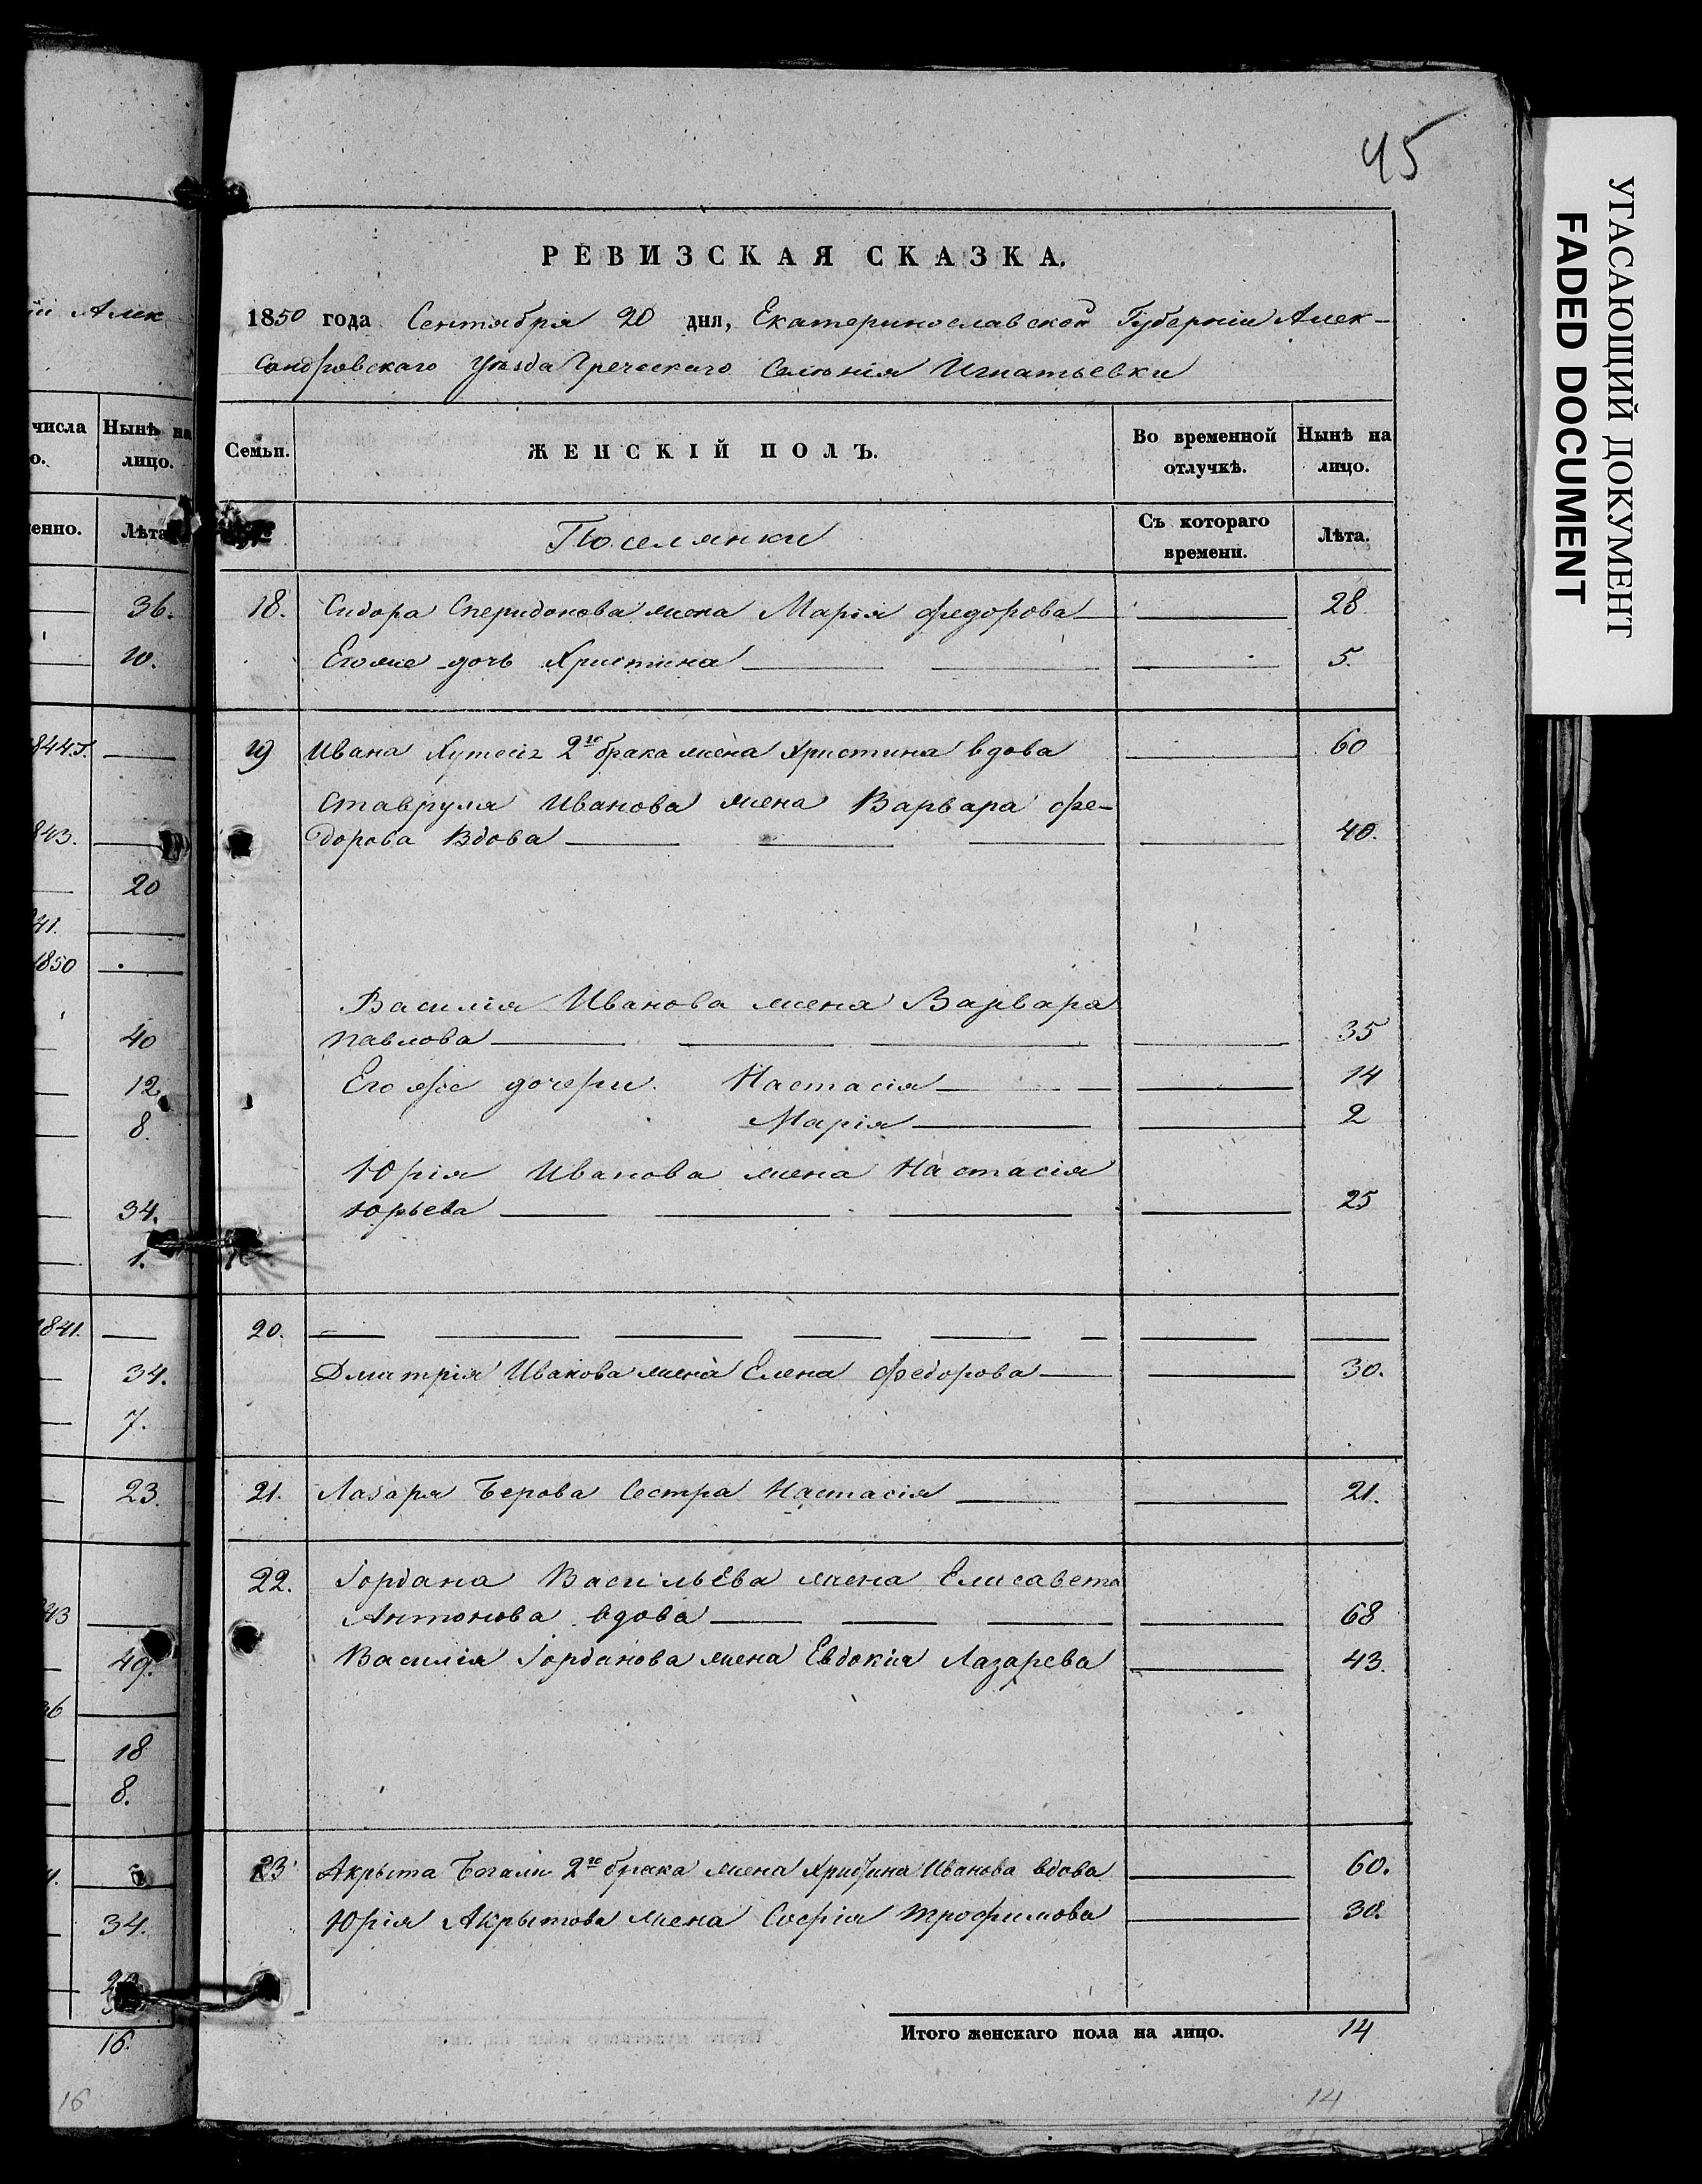 45
РЕВИЗСКАЯ СКАЗКА.
1850 года Сентября 20 дня, Екатеринославской Губерніи Алек-
сандровскаго Уѣзда Греческаго Селѣнія Игнатьевки
Семьи. ЖЕНСКІЙ ПОЛЪ. Во временной отлучкѣ. Нынѣ на лицо.
Поселянки Съ котораго времени. Лѣта.
18. Сидора Спиридонова жена Марія Федорова 28
Егоже дочь Христина 5.
19 Ивана 2го брака жена Христина вдова 60
Ставруля Иванова жена Варвара Фе-
дорова Вдова 40.
Василія Иванова жена Варвара
Павлова 35
Его же дочери Настасія 14
Марія 2
Юрія Иванова жена Настасія
Юрьева 25
20.
Дмитрія Иванова жена Елена Федорова 30.
21. Лазаря Берова Сестра Настасія 21.
22. Іордана Васильева жена Елисавета
Антонова вдова 68
Василія Іорданова жена Евдокия Лазарева 43.
23 Акрыта Богали 2го брака жена Христина Иванова вдова 60.
Юрія Акрытова жена Софія Трофимова 30.
Итого женскаго пола на лицо. 14
14
ій Алек
числа Нынѣ на
о. лицо.
енно. Лѣта
36.
10.
844 г.
843.
20
41.
1850
40
12.
8.
34.
1.
1841.
34.
7.
23.
43
49.
36
18
8.
34.
16.
16
УГАСАЮЩИЙ ДОКУМЕНТ
FADED DOCUMENT